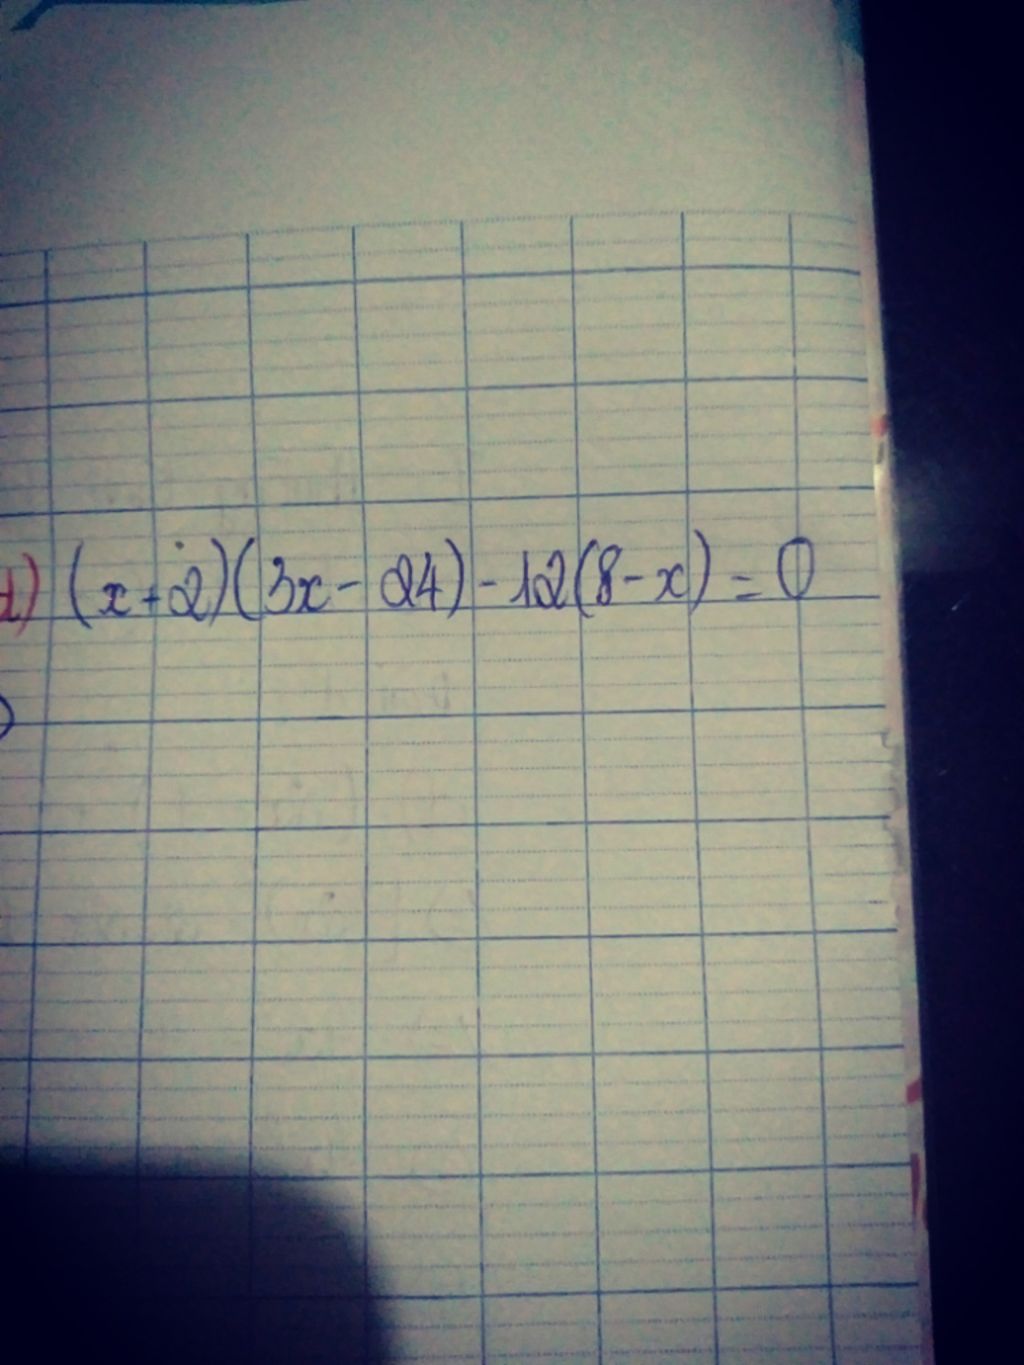 d) (x+2)(3x-24)-12(8-x)=0
)